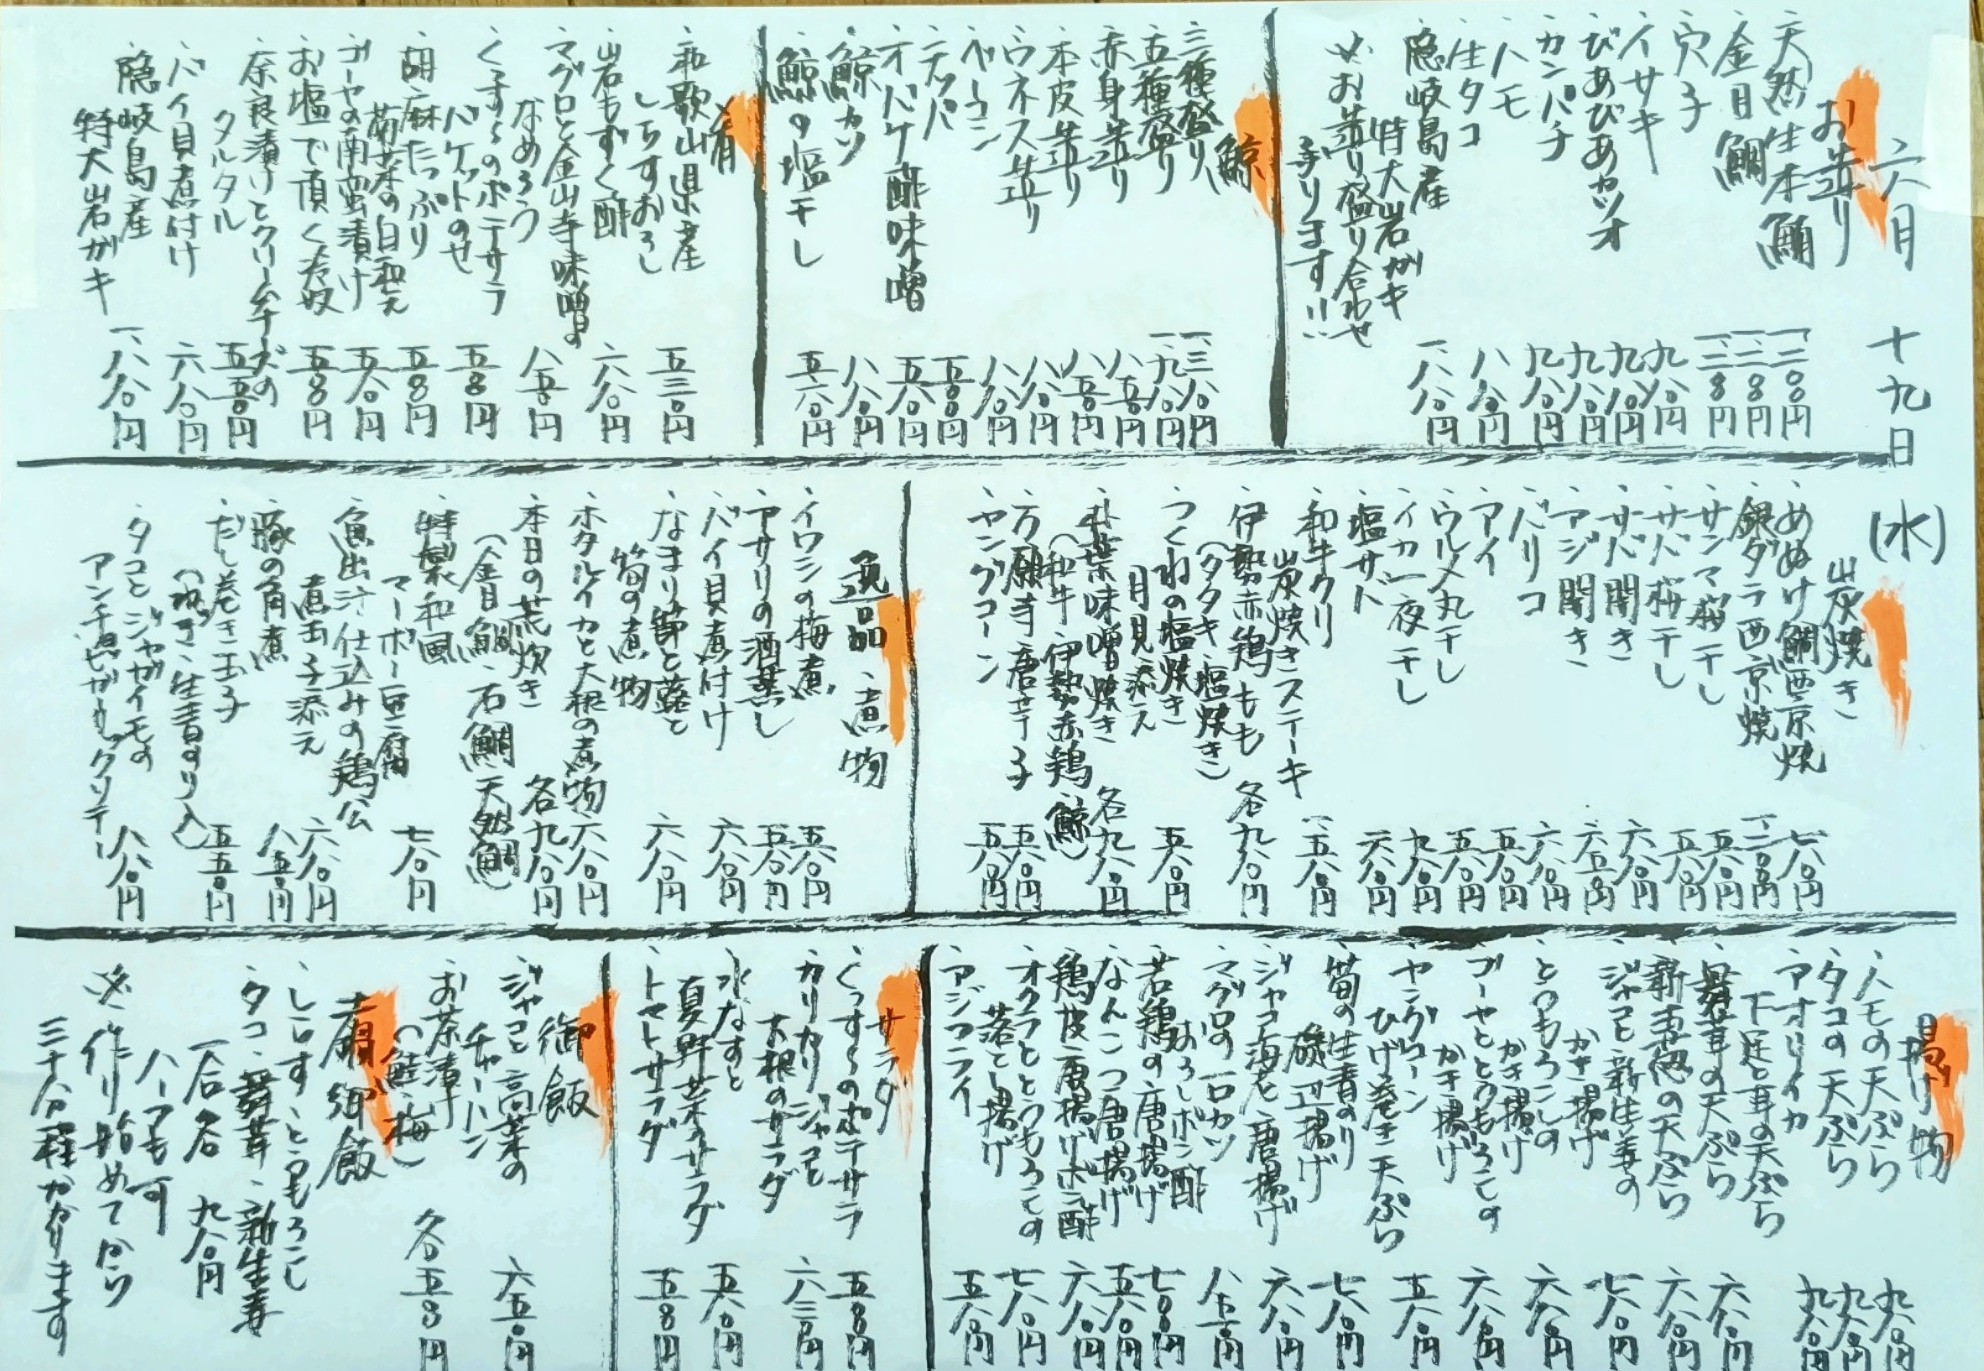 六月 十九日 (水)
お造り
・天然生本鮪 一、二〇〇円
・金目鯛 一、二〇〇円
・穴子
・イサキ 九八〇円
・びあびあカツオ 九八〇円
・カンパチ 九八〇円
・ハモ 九八〇円
・生タコ 八八〇円
・隠岐島産
特大岩ガキ 一、八八〇円
※お造り盛り合わせ
有ります!!
鯨
・三種盛り 一、三八〇円
・五種盛り 一、九八〇円
・赤身造り 八五〇円
・本皮造り 八五〇円
・ウネス造り 八八〇円
・ベーコン 八八〇円
・テッパ 五五〇円
・オバケ酢味噌 五八〇円
・鯨カツ 八八〇円
・鯨の塩干し 五六〇円
肴
・和歌山県産
しらすおろし 五三〇円
・岩もずく酢 六八〇円
・マグロと金山寺味噌の
なめろう 八五〇円
・くっすぅのポテサラ
バケットのせ 五五〇円
・胡麻たっぷり
菊菜の白和え 五五〇円
・ゴーヤの南蛮漬け 五八〇円
・お塩で頂く冷奴 五五〇円
・奈良漬けとクリームチーズの
タルタル 五五〇円
・バイ貝煮付け 六八〇円
・隠岐島産
特大岩ガキ 一、八八〇円
炭焼き
・めぬけ鯛西京焼 七八〇円
・銀ダラ西京焼 一、二〇〇円
・サンマ桜干し 五八〇円
・サバ桜干し 五八〇円
・サバ開き 六八〇円
・アジ開き 六五〇円
・バリコ 六八〇円
・アイ 五八〇円
・ウルメ丸干し 五八〇円
・イカ一夜干し 九八〇円
・塩サバ 六八〇円
・和牛クリ
炭焼きステーキ 一、五八〇円
・伊勢赤鶏もも 各九八〇円
(タタキ・塩焼き)
・つくねの塩焼き
月見添え 五八〇円
・朴葉味噌焼き 各九八〇円
(和牛・伊勢赤鶏・鯨)
・万願寺唐辛子 五八〇円
・ヤングコーン 五八〇円
逸品・煮物
・イワシの梅煮 五八〇円
・アサリの酒蒸し 五八〇円
・バイ貝煮付け 六八〇円
・なまり節と蕗と
筍の煮物 六八〇円
・ホタルイカと大根の煮物 六八〇円
・本日の荒炊き 各九八〇円
(金目鯛・石鯛・天然鯛)
・特製和風
マーボー豆腐 七八〇円
・魚出汁仕込みの鶏公
煮玉子添え 六八〇円
・豚の角煮 八五〇円
・だし巻き玉子 五五〇円
(ねぎ・生青のり入)
・タコとジャガイモの
アンチョビガーリックソテー 八八〇円
揚げ物
・ハモの天ぷら 九八〇円
・タコの天ぷら 九八〇円
・アオリイカ
下足と耳の天ぷら 九八〇円
・舞茸の天ぷら 六八〇円
・新玉葱の天ぷら 六八〇円
・ジャコと新生姜の
かき揚げ 七八〇円
・とうもろこしの
かき揚げ 六八〇円
・ゴーヤととうもろこしの
かき揚げ 六八〇円
・ヤングコーン
ひげ巻き天ぷら 五八〇円
・筍の生青のり
磯辺揚げ 七八〇円
・ジャコ海老唐揚げ 六八〇円
・マグロの一口カツ
おろしポン酢
・若鶏の唐揚げ 七八〇円
・なんこつ唐揚げ 五八〇円
・鶏皮唐揚げポン酢 六八〇円
・オクラととうもろこしの
落とし揚げ 七八〇円
・アジフライ 五八〇円
サラダ
・くっすぅのポテサラ 五五〇円
・カリカリジャコと
大根のサラダ 六三〇円
・水なすと
夏野菜のサラダ 五八〇円
・トマトサラダ 五五〇円
御飯
・ジャコと高菜の
チャーハン 六五〇円
・お茶漬け 各五五〇円
(鮭・梅)
土鍋御飯
・しらすとうもろこし
・タコ・舞茸・新生姜
一合各 九八〇円
ハーフも可
※作り始めてから
三十分程かかります